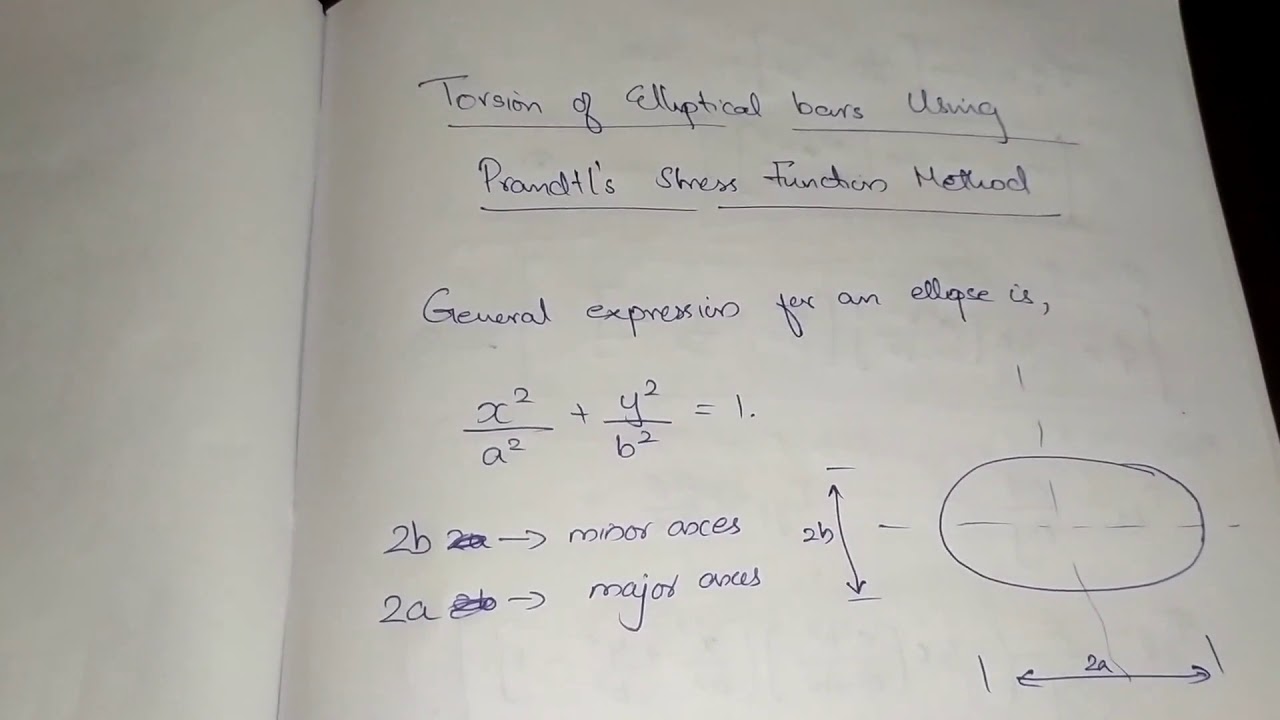 Torsion of Elliptical bars Using
Prandtl's Stress Function Method
General expression for an ellipse is,
x²/a² + y²/b² = 1.
2b → minor axes
2a → major axes
2b
2a